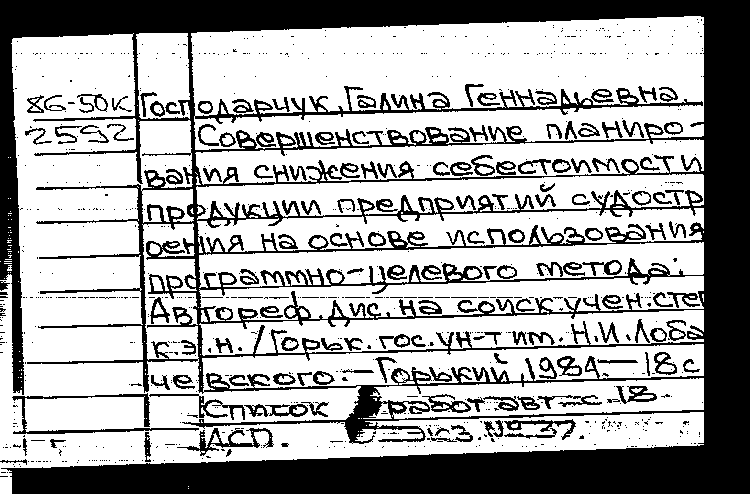 86-50к Господарчук, Галина Геннадьевна.
2592 Совершенствование планиро-
вания снижения себестоимости
продукции предприятий судостр
оения на основе использования
программно-целевого метода:
Автореф. дис. на соиск. учен. степ
к.э.н. / Горьк. гос. ун-т им. Н.И. Лоба
чевского. - Горький, 1984. - 18 с
Список работ авт. с. 18.
ДСП. Экз. № 37.